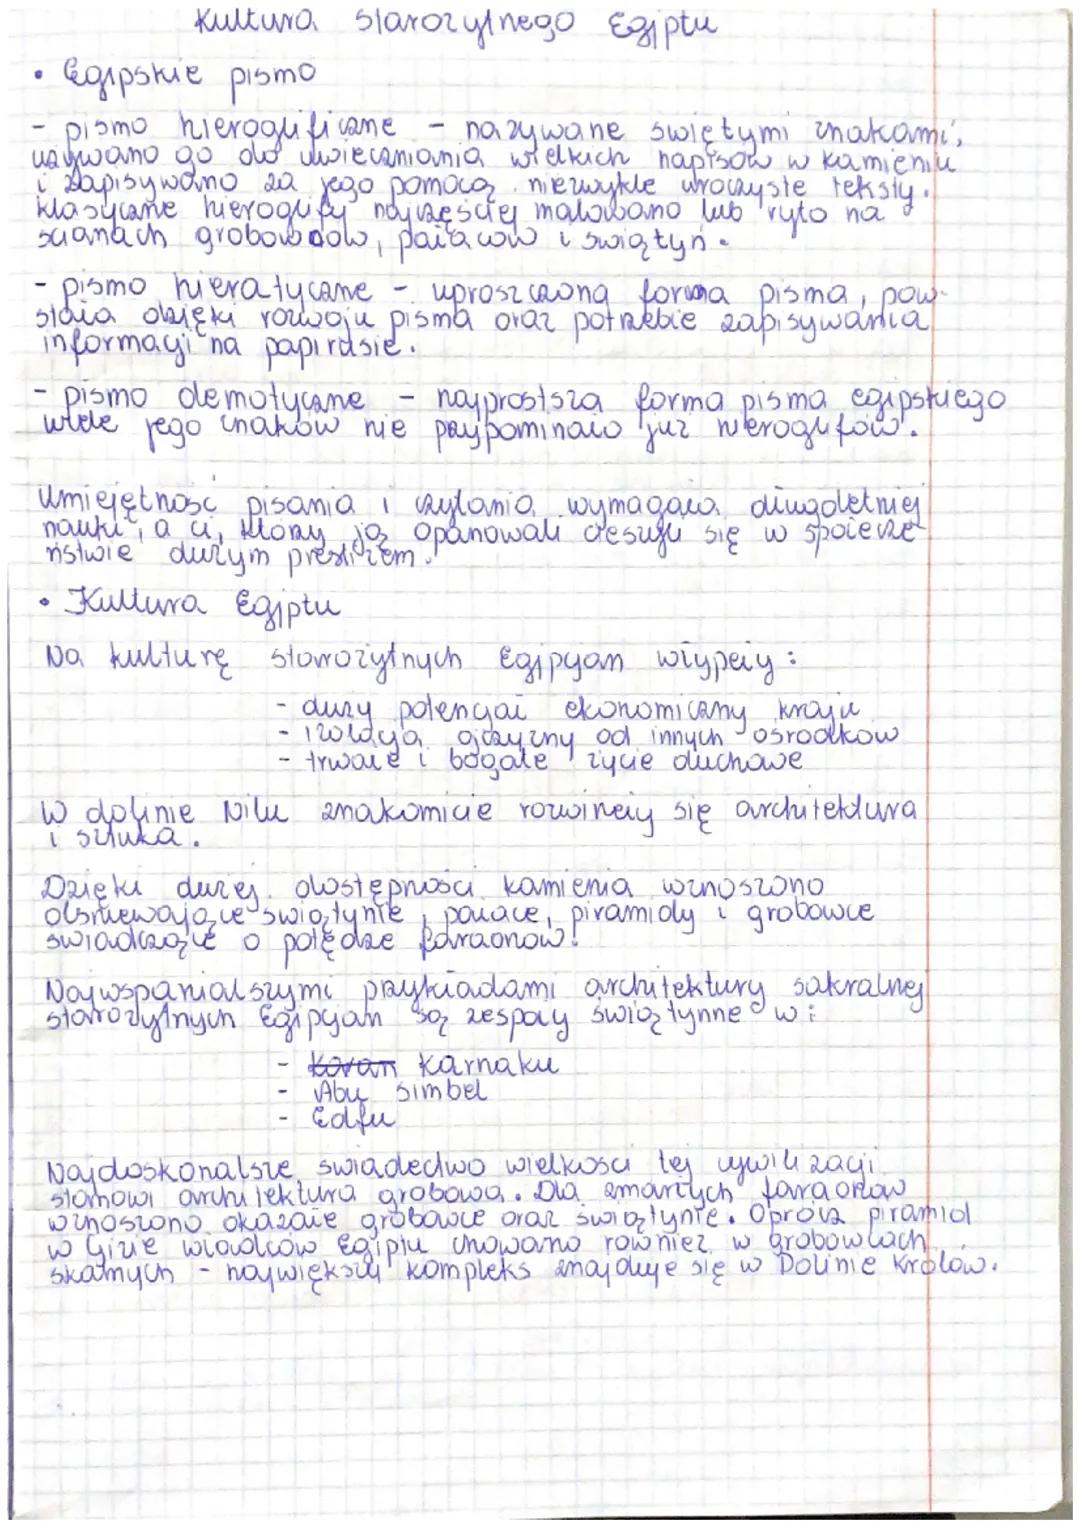 Kultura starożytnego Egiptu
• Egipskie pismo
- pismo hieroglificzne - nazywane świętymi znakami,
używano go do uwieczniania wielkich napisów w kamieniu
i zapisywano za jego pomocą niezwykle uroczyste teksty.
klasyczne hieroglify najczęściej malowano lub ryto na
ścianach grobowców, pałaców i świątyń.
- pismo hieratyczne - uproszczona forma pisma, pow-
stała dzięki rozwoju pisma oraz potrzebie zapisywania
informacji na papirusie.
- pismo demotyczne - najprostsza forma pisma egipskiego
wiele jego znaków nie przypominało już hieroglifów.
Umiejętność pisania i czytania wymagała długoletniej
nauki, a ci, którzy ją opanowali cieszyli się w społecze-
ństwie dużym prestiżem.
• Kultura Egiptu
Na kulturę starożytnych Egipcjan włypęły:
- duży potencjał ekonomiczny kraju
- izolacja ojczyzny od innych ośrodków
- trwałe i bogate życie duchowe
W dolinie Nilu znakomicie rozwinęły się architektura
i sztuka.
Dzięki dużej dostępności kamienia wznoszono
olśniewające świątynie, pałace, piramidy i grobowce
świadczące o potędze faraonów.
Najwspanialszymi przykładami architektury sakralnej
starożytnych Egipcjan są zespoły świątynne w:
- Karnaku
- Abu Simbel
- Edfu
Najdoskonalsze świadectwo wielkości tej cywilizacji
stanowi architektura grobowa. Dla zmarłych faraonów
wznoszono okazałe grobowce oraz świątynie. Oprócz piramid
w Gizie władców Egiptu chowano również w grobowcach
skalnych - największy kompleks znajduje się w Dolinie Królów.